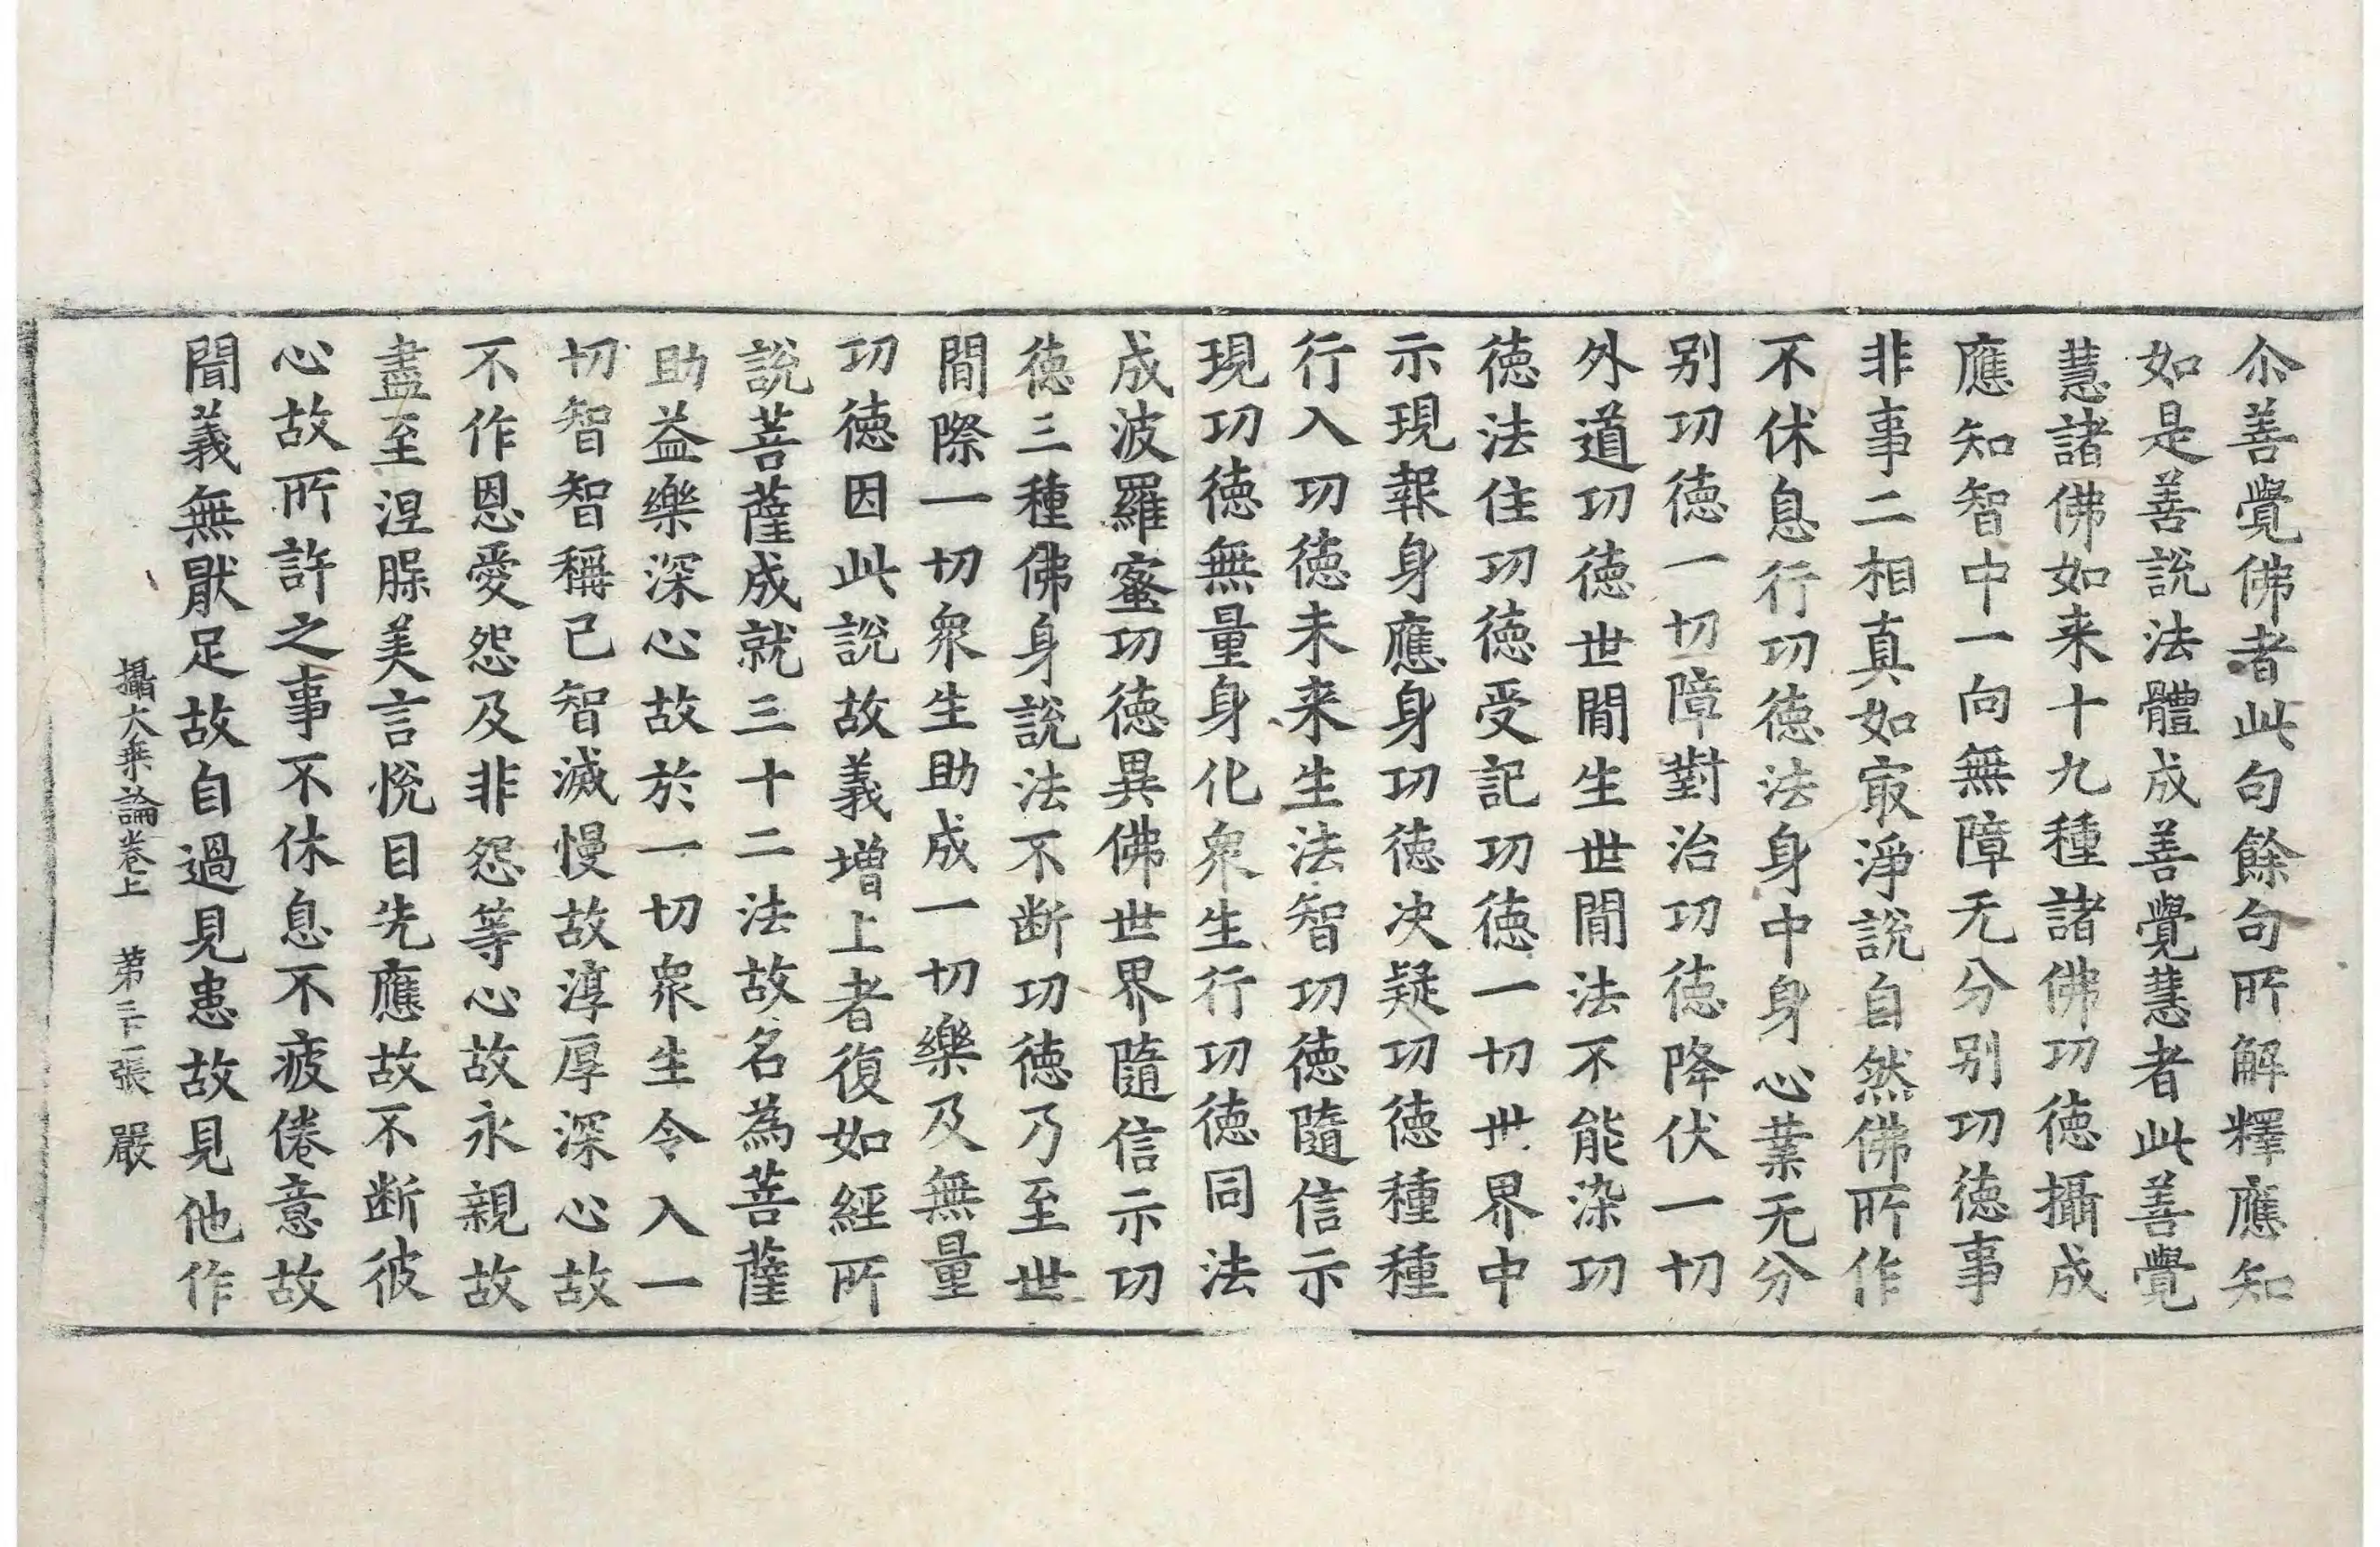 尒善覺佛者此句餘句所解釋應知
如是善說法體成善覺慧者此善覺
慧諸佛如来十九種諸佛功徳攝成
應知智中一向無障无分别功徳事
非事二相真如㝡淨說自然佛所作
不休息行功徳法身中身心業无分
别功徳一切障對治功徳降伏一切
外道功徳世間生世間法不能染功
徳法住功徳受記功徳一切世界中
示現報身應身功徳决疑功徳種種
行入功徳未来生法智功徳隨信示
現功徳無量身化衆生行功徳同法
成波羅蜜功徳異佛世界隨信示功
徳三種佛身說法不断功徳乃至世
間際一切衆生助成一切樂及無量
功徳因此說故義増上者復如經所
說菩薩成就三十二法故名為菩薩
助益樂深心故於一切衆生令入一
切智智稱己智滅慢故淳厚深心故
不作恩愛怨及非怨等心故永親故
盡至涅槃美言悅目先應故不断彼
心故所許之事不休息不疲倦意故
聞義無猒足故自過見患故見他作
攝大乗論卷上　第三十二張　嚴